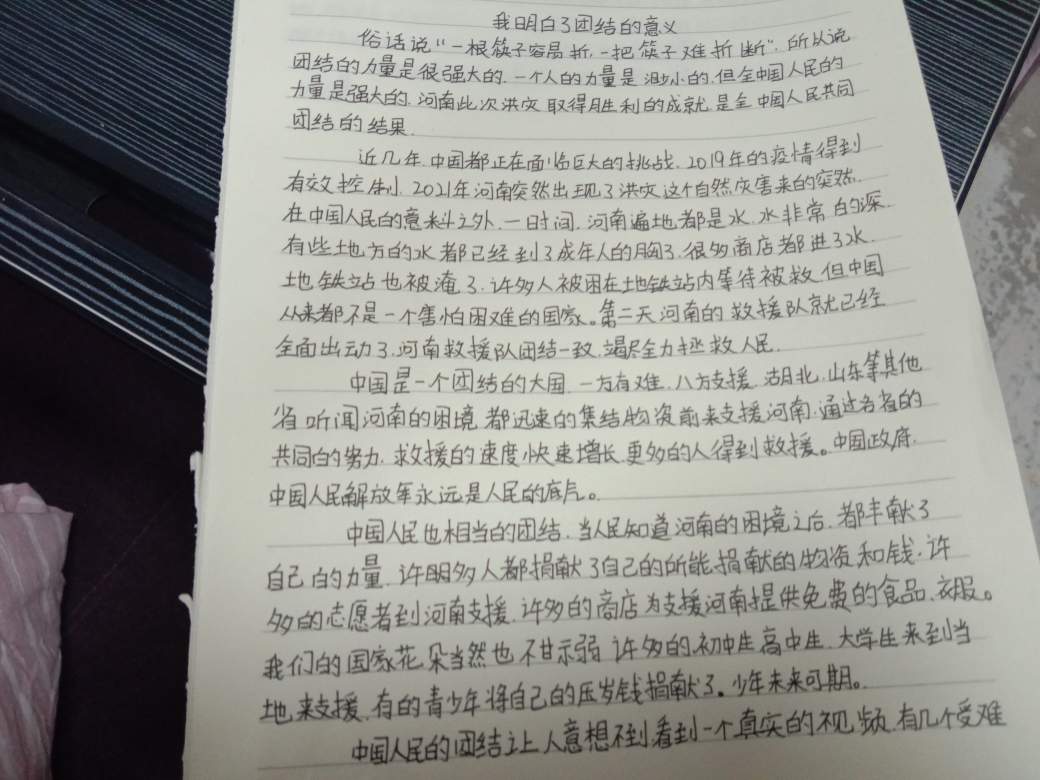 我明白了团结的意义
俗话说“一根筷子容易折,一把筷子难折断”.所以说
团结的力量是很强大的.一个人的力量是渺小的,但全中国人民的
力量是强大的.河南此次洪灾取得胜利的成就是全中国人民共同
团结的结果.
近几年.中国都正在面临巨大的挑战.2019年的疫情得到
有效控制.2021年河南突然出现了洪灾这个自然灾害来的突然.
在中国人民的意料之外.一时间.河南遍地都是水.水非常的深.
有些地方的水都已经到了成年人的胸了.很多商店都进了水.
地铁站也被淹了.许多人被困在地铁站内等待被救.但中国
从来都不是一个害怕困难的国家。第二天河南的救援队就已经
全面出动了.河南救援队团结一致.竭尽全力拯救人民.
中国是一个团结的大国.一方有难.八方支援.湖北.山东等其他
省听闻河南的困境.都迅速的集结物资前来支援河南.通过各省的
共同的努力.求援的速度快速增长.更多的人得到救援。中国政府.
中国人民解放军永远是人民的底气。
中国人民也相当的团结.当人民知道河南的困境之后.都奉献了
自己的力量.许多人都捐献了自己的所能捐献的物资和钱.许
多的志愿者到河南支援.许多的商店为支援河南提供免费的食品.衣服。
我们的国家花朵当然也不甘示弱.许多的初中生高中生.大学生来到当
地来支援.有的青少年将自己的压岁钱捐献了。少年未来可期。
中国人民的团结让人意想不到看到一个真实的视频.有几个受难